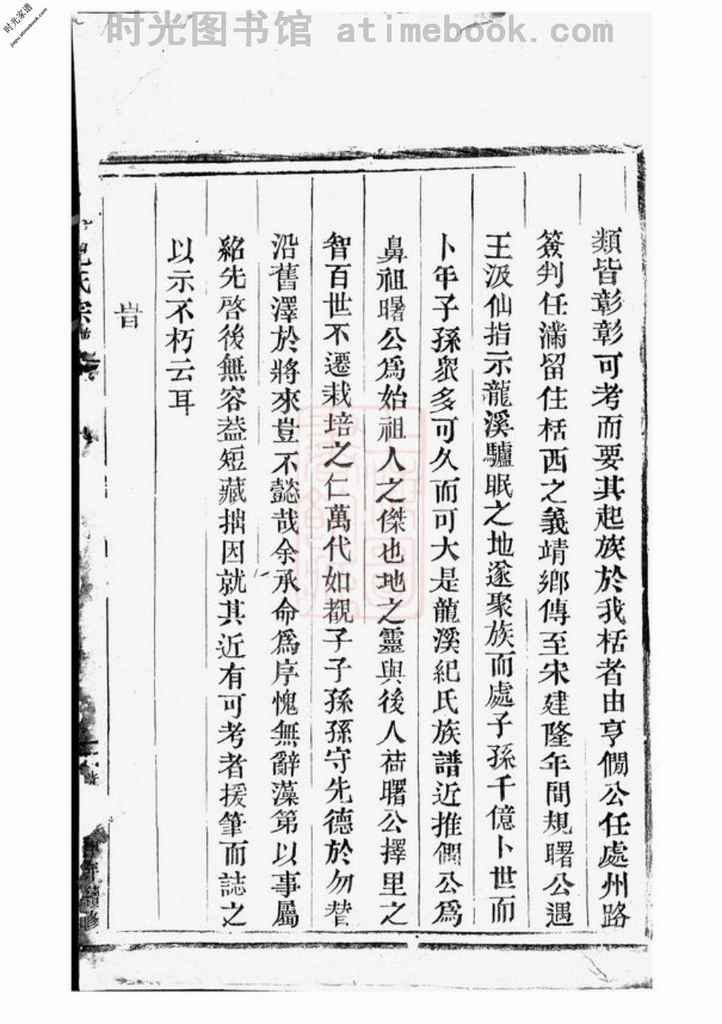 时光图书馆 atimebook.com
时光家谱
jiapu.atimebook.com
類皆彰彰可考而要其起族於我栝者由亨僩公任處州路
簽判任滿留住栝西之義靖鄉傳至宋建隆年間規曙公遇
王汲仙指示龍溪驢眠之地遂聚族而處子孫千億卜世而
卜年子孫眾多可久而可大是龍溪紀氏族譜近推僩公為
鼻祖曙公為始祖人之傑也地之靈與後人荷曙公擇里之
智百世不遷栽培之仁萬代如覩子子孫孫守先德於勿替
沿舊澤於將來豈不懿哉余承命為序愧無辭藻第以事屬
紹先啓後無容葢短藏拙因就其近有可考者援筆而誌之
以示不朽云耳
旹
氏宗